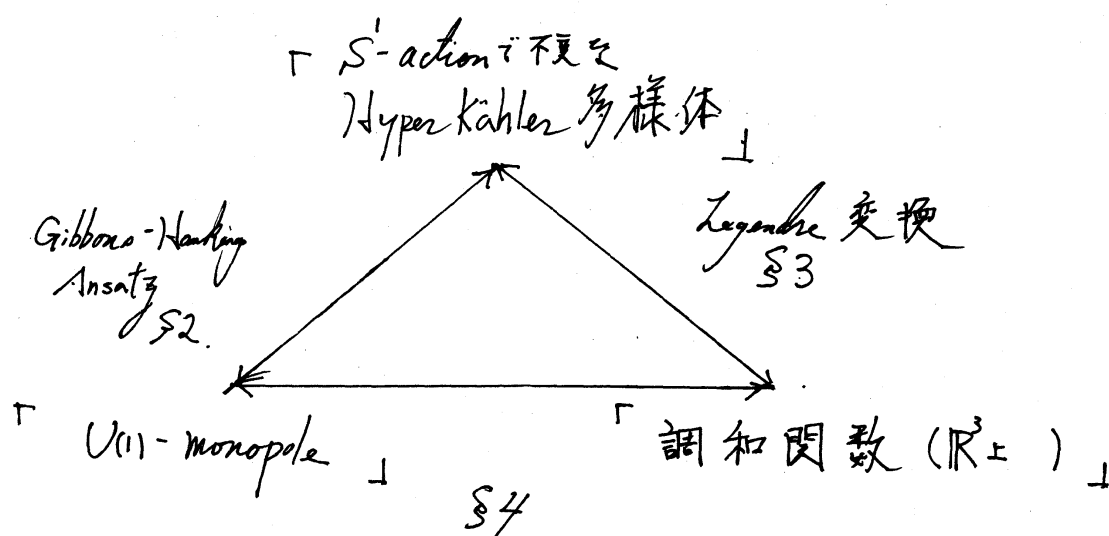 「 S¹-actionで不変な
Hyper Kähler 多様体 」
Gibbons-Hawking
Ansatz
§2.
Legendre 変換
§3
「 U(1)-monopole 」
「 調和関数 (ℝ³上 ) 」
§4